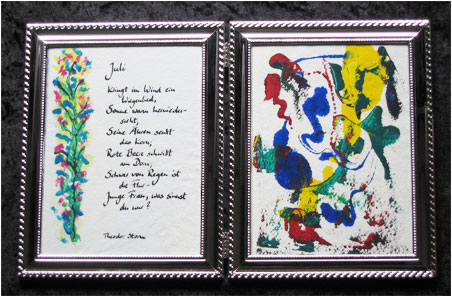 Juli
Klingt im Wind ein
Wiegenlied,
Sonne warm hernieder-
sieht,
Seine Ähren senkt
das Korn,
Rote Beere schwillt
am Dorn,
Schwer von Regen ist
die Flur -
Junge Frau, was sinnst
du nur?
Theodor Storm